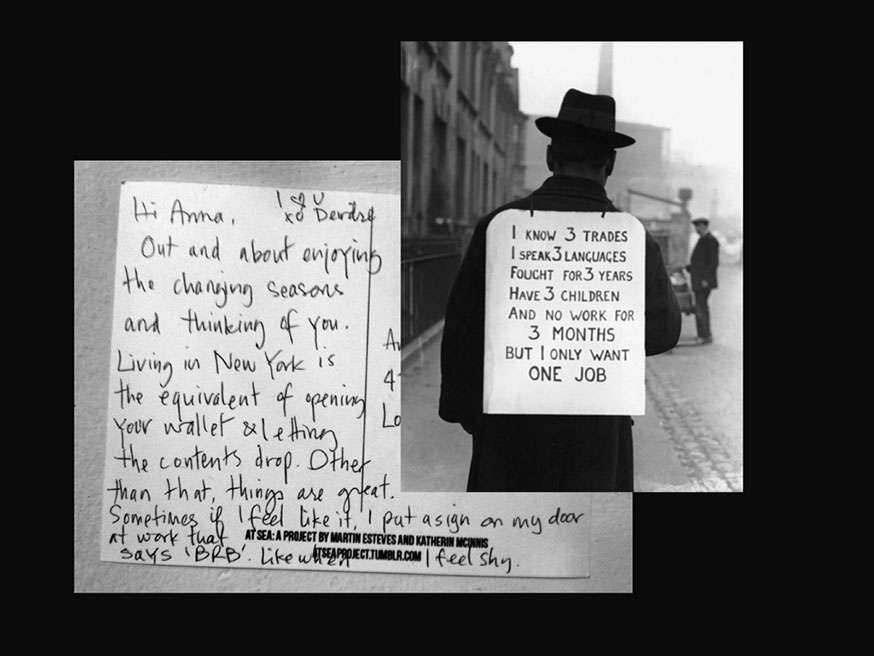 Hi Anna,
I ♡ U
xo Deirdre
Out and about enjoying
the changing seasons
and thinking of you.
Living in New York is
the equivalent of opening
your wallet & letting
the contents drop. Other
than that, things are great.
Sometimes if I feel like it, I put a sign on my door
at work that
says 'BRB'. Like when I feel shy.
AT SEA: A PROJECT BY MARTIN ESTEVES AND KATHERIN MCINNIS
ATSEAPROJECT.TUMBLR.COM
4
Lo
I KNOW 3 TRADES
I SPEAK 3 LANGUAGES
FOUGHT FOR 3 YEARS
HAVE 3 CHILDREN
AND NO WORK FOR
3 MONTHS
BUT I ONLY WANT
ONE JOB